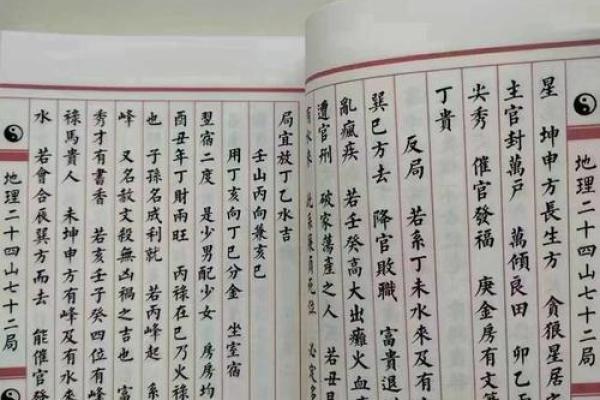 地理二十四山七十二局
星 坤申方長生方 貪狼星居
主官封萬戶 萬傾良田 卯乙
尖秀 催官發福 庚金房有文
丁貴
反局 若系丁未水来及有
巽巳方去 降官敗職 富貴退
亂瘋疾 若壬癸高大出癱火血
遭官刑 破家蕩產之人 若丑
有水来 位 必定
局宜放丁乙水吉
壬山丙向兼亥巳
用丁亥向丁巳分金 坐室宿
翌宿二度 是少男配少女 房房均
酉丑年丁財兩旺 丙禄在巳乃火禄
也 子孫名成利就 若丙峰起 系
峰 又名赦文殺無凶禍之吉也 富
秀才有書香 若亥壬子癸四位有峰
禄馬貴人 未坤申方有峰及有水来
水 若會合辰巽方而去 能催官發
地理二十四山七十二局